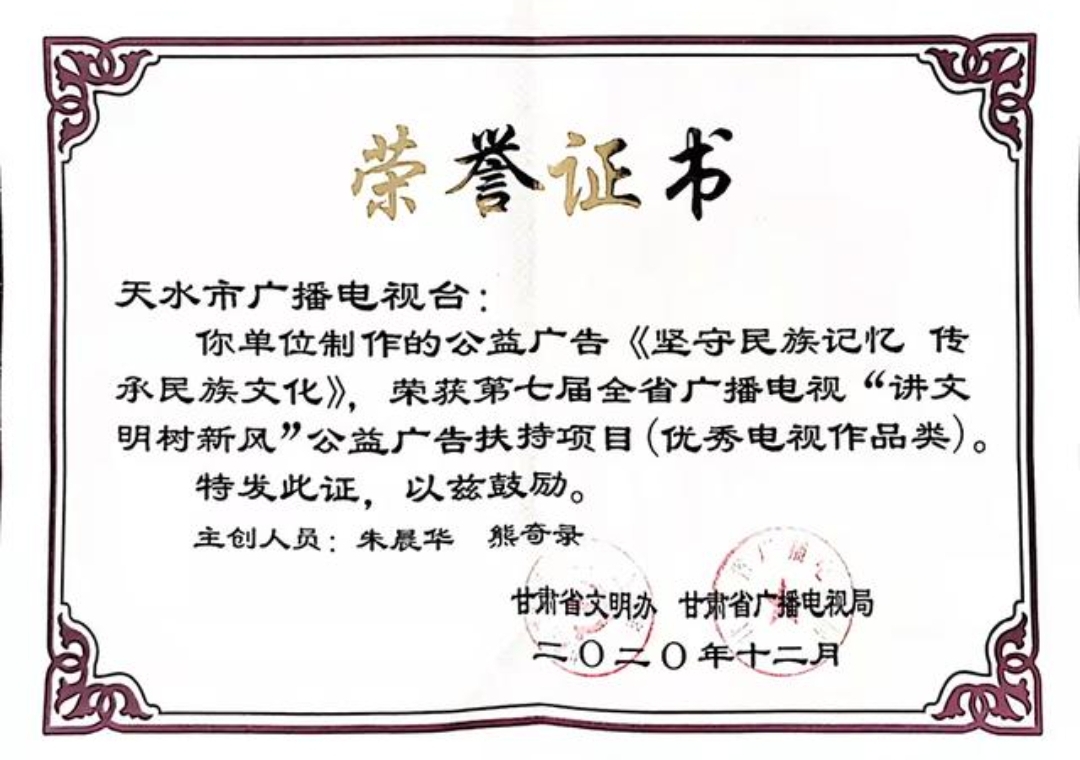 荣誉证书
天水市广播电视台：
你单位制作的公益广告《坚守民族记忆 传
承民族文化》，荣获第七届全省广播电视“讲文
明树新风”公益广告扶持项目(优秀电视作品类)。
特发此证，以兹鼓励。
主创人员：朱晨华 熊奇录
甘肃省文明办 甘肃省广播电视局
二〇二〇年十二月